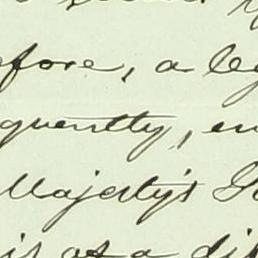 efore, a leg
quently, en
Majesty's Go
is as a dif